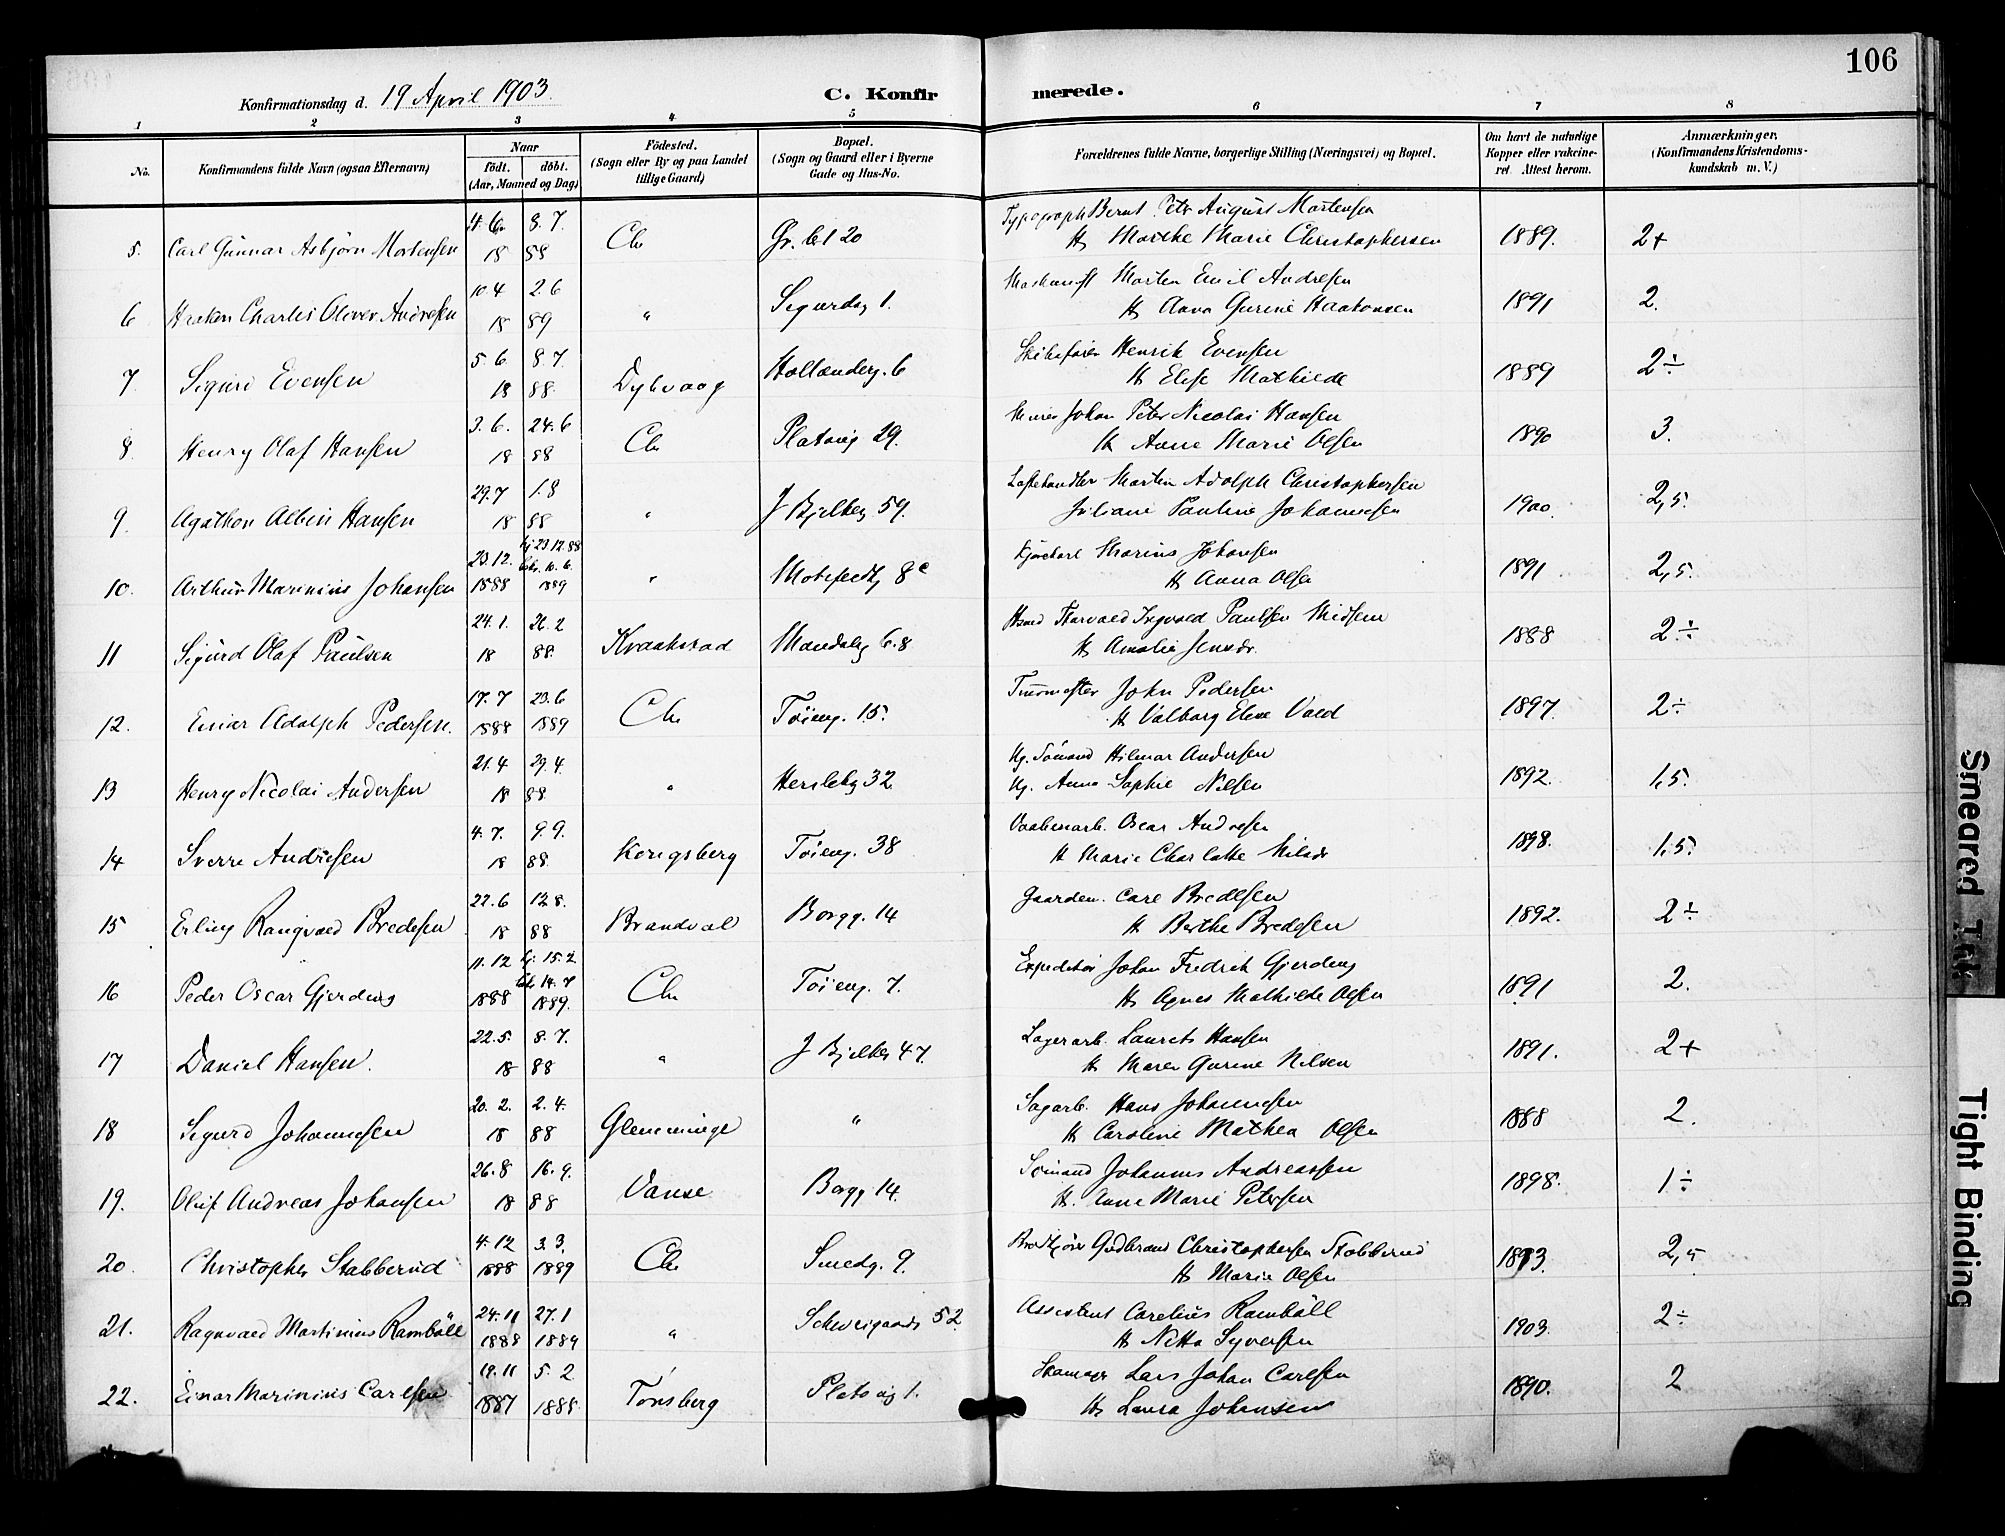 106
Konfirmationsdag d. 19 April 1903.
C. Konfirmerede.
1 2 3 4 5 6 7 8
No.
Konfirmandens fulde Navn (ogsaa Efternavn)
Naar
født. døbt.
(Aar, Maaned og Dag)
Fødested.
(Sogn eller By og paa Landet
tillige Gaard)
Bopæl.
(Sogn og Gaard eller i Byerne
Gade og Hus-No.
Forældrenes fulde Navne, borgerlige Stilling (Næringsvei) og Bopæl.
Om havt de naturlige
Kopper eller vakcine-
ret. Attest herom.
Anmærkninger.
(Konfirmandens Kristendoms-
kundskab m. V.)
4. 6. 8. 7. Typograph Bernt Petr August Mortensen
5. Carl Gunnar Asbjørn Mortensen 18 88 Chr Gr. bel 20 H Marthe Marie Christophersen 1889. 2+
10. 4 2. 6 Morten Emil Andresen
6 Haaken Charles Oliver Andresen 18 89 " Sigurdsg 1. H Anna Gurine Haakonsen 1891 2.
5. 6 8. 7. Henrik Evensen
7 Sigurd Evensen 18 88. Dybvaag Hollenderg. 6 H Elise Mathilde 1889 2÷
3. 6. 24. 6 Murer Johan Peter Nicolai Hansen
8. Henry Olaf Hansen 18 88 Chr Platousg 29. H Anne Marie Olsen 1890 3.
29. 7 1. 8 Martin Adolph Christophersen
9. Agathon Albin Hansen 18 88 " J Bjelkesg 59. Juliane Pauline Johannesen 1900. 2,5.
23. 12. hj 23. 12. 88 Kjørekarl Marius Johansen
10. Arthur Marinius Johansen 1888 10. 6. 1889 " Motzfeldtsg 8c H Anna Olsen 1891 2,5.
24. 1. 26. 2 Thorvald Ingvald Paulsen
11 Sigurd Olaf Paulsen 18 88. Kraakstad Mandalsg 6. 8 H Amalie Jensdr. 1888 2÷
17. 7 23. 6 John Pedersen
12. Einar Adolph Pedersen. 1888 1889 Chr Tøieng. 15. H Valborg Elise 1897. 2÷
21. 4 29. 4. Ug. Sømand Hilmar Andersen
13 Henry Nicolai Andersen 18 88 " Herslebsg 32 Ug. Anna Sophie Nilsen 1892. 1,5.
4. 7. 9. 9. Vaabenarb. Oscar Andresen
14 Sverre Andresen 18 88 Kongsberg Tøieng. 38 H Marie Charlotte Nilsdr 1898. 1,5.
22. 6 12 8. Gaarden. Carl Bredesen
15 Erling Rangvald Bredesen 18 88 Brandval Borgg. 14 H Berthe Bredesen 1892. 2÷
11. 12 hj. 15. 2 Expeditør Johan Fredrik Gjerding
16 Peder Oscar Gjerding 1888 14. 7 1889. Chr Tøieng. 7. H Agnes Mathilde Olsen 1891 2.
22. 5. 8. 7. Lagerarb. Laurits Hansen
17 Daniel Hansen. 18 88 " J Bjelkesg 47. H Maren Gurine Nilsen 1891. 2+
20. 2. 2. 4. Sagarb. Hans Johannesen
18 Sigurd Johannesen 18 88 Glemminge " H Caroline Mathea Olsen 1888 2.
26. 8 16. 9. Sømand Johannes Andreassen
19. Oluf Andreas Johansen 18 88 Vanse Borgg 14. H. Anne Marie Petersen 1898. 1÷
4. 12 3. 3. Gudbrand Christophersen Stabberud
20. Christopher Stabberud 1888 1889 Chr Smedg. 9. H Marie Olsen 2,5
24. 11 27. 1 Assistent Carelius Ramböll
21. Ragnvald Martinius Ramböll 1888 1889 " Schweigaards 52 H Netta Syversen 1903. 2÷
19. 11 5. 2 Skomager Lars Johan Carlsen
22. Einar Marinius Carlsen 1887 1888 Tønsberg Platousg 1. H Laura Johansen 1890. 2
Smeared Ink
Tight Binding